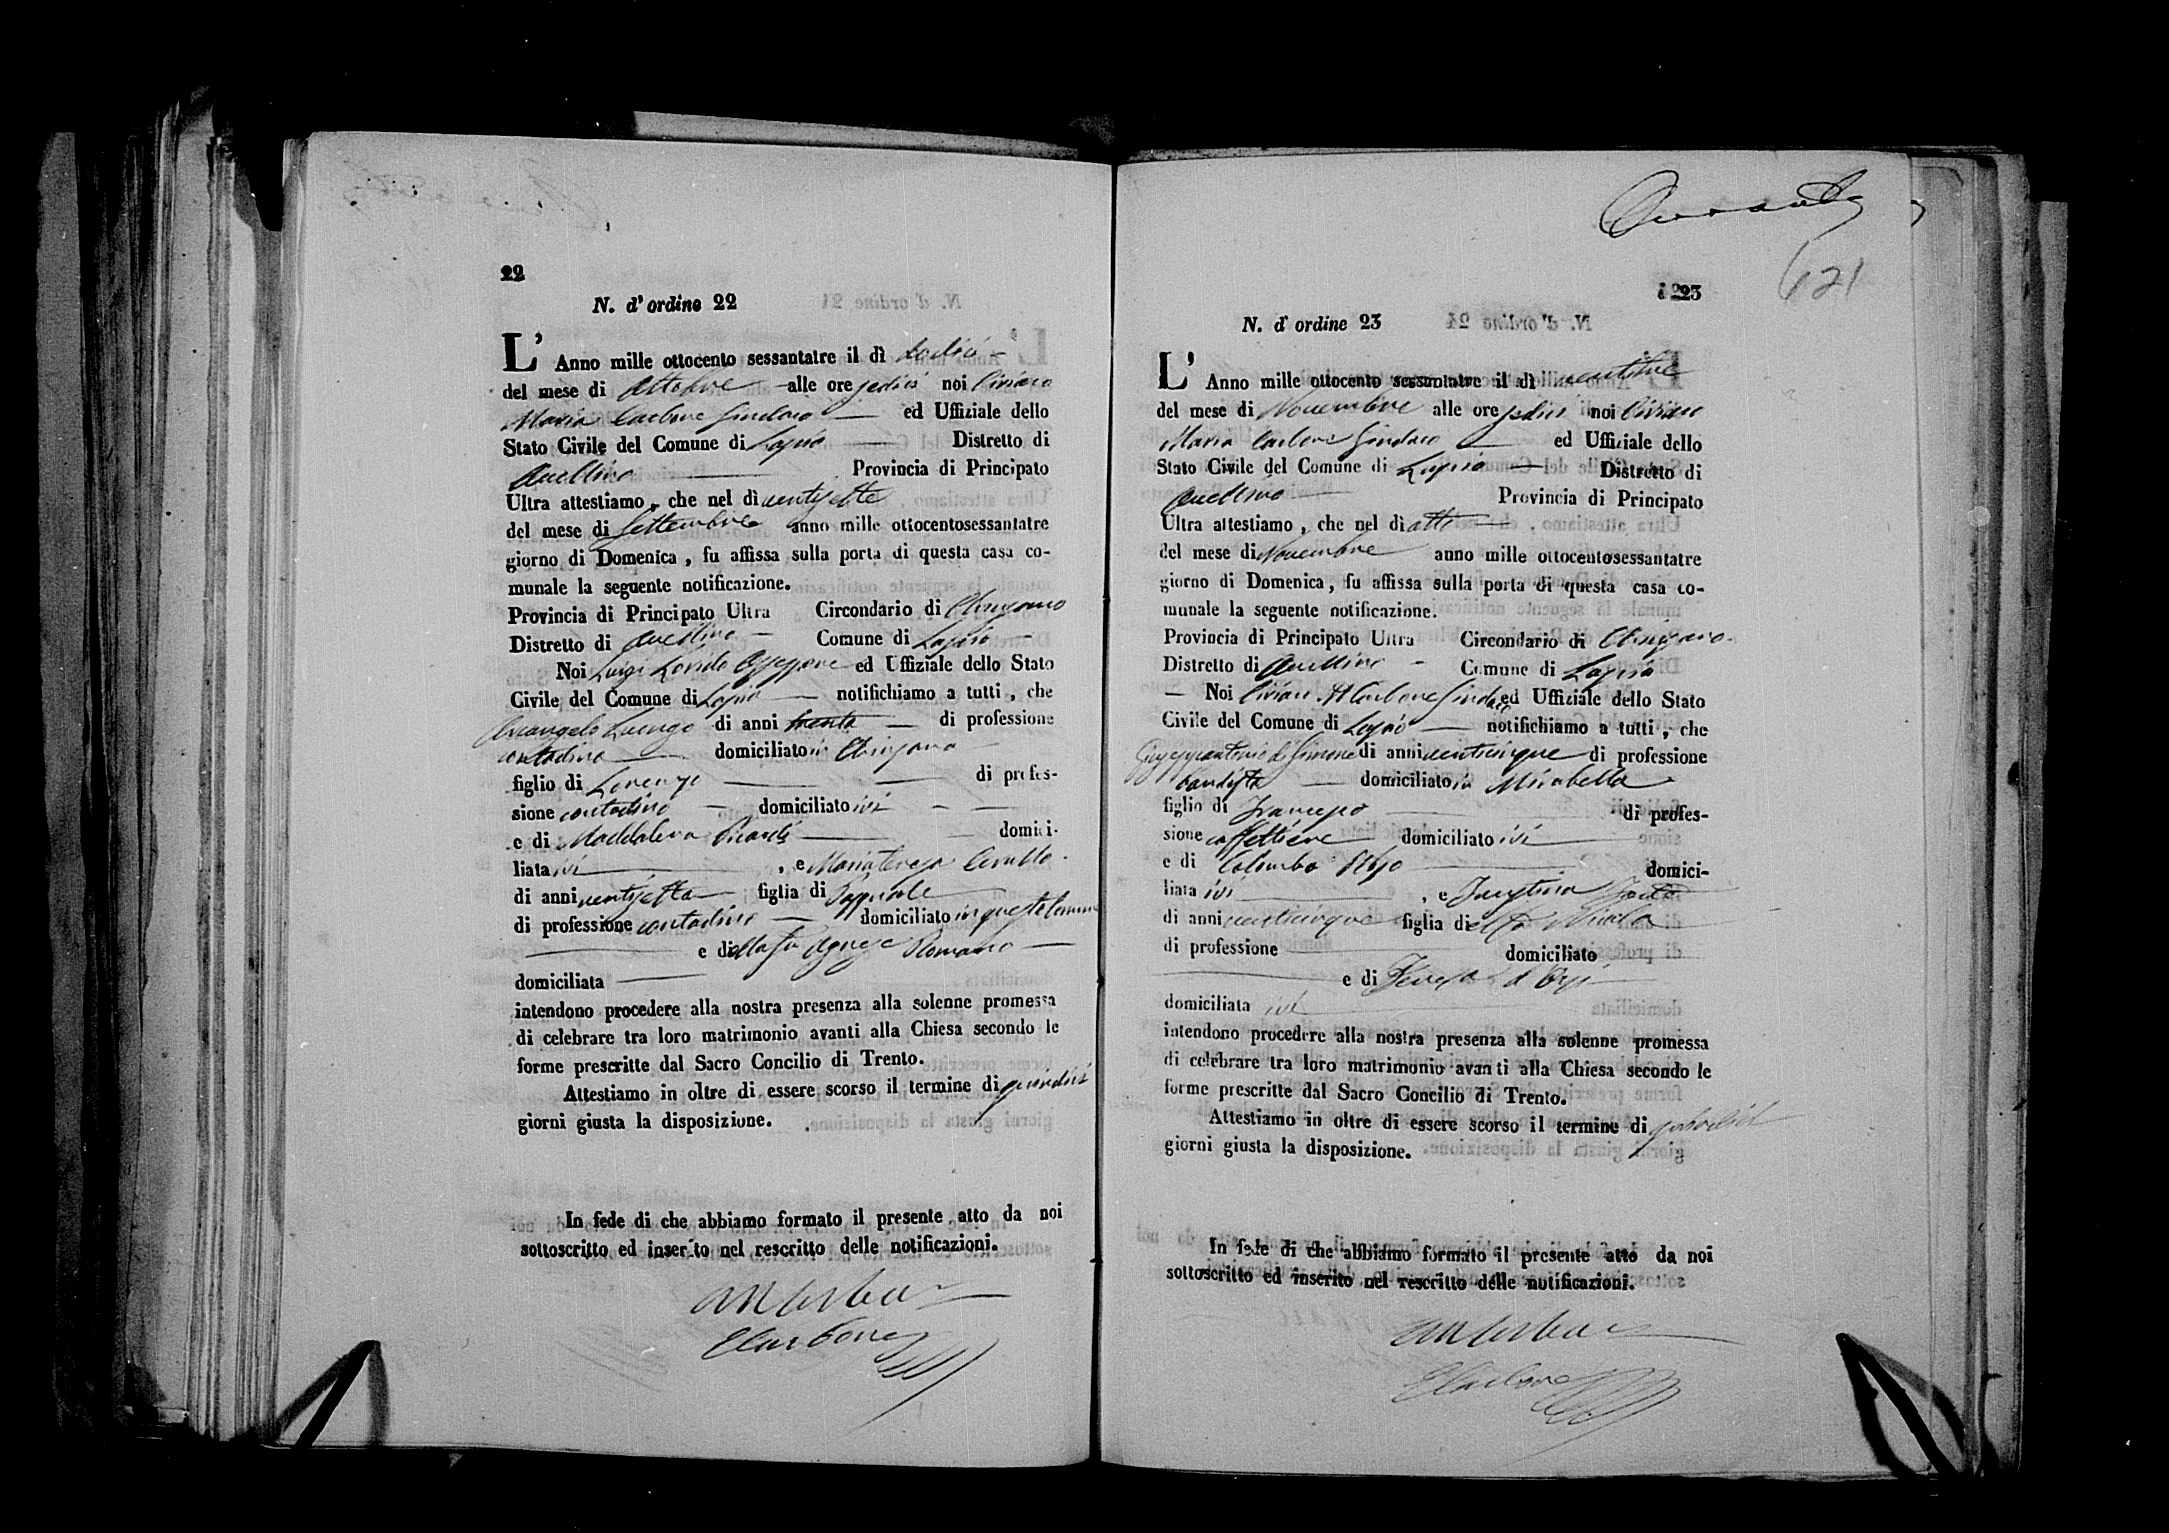 22
N. d' ordine 22
L' Anno mille ottocento sessantatre il dì dodici
del mese di Ottobre alle ore sedici noi Ciriaco
Maria Carbone Sindaco ed Uffiziale dello
Stato Civile del Comune di Lapio Distretto di
Avellino Provincia di Principato
Ultra attestiamo, che nel dì ventisette
del mese di Settembre anno mille ottocentosessantatre
giorno di Domenica, fu affissa sulla porta di questa casa co-
munale la seguente notificazione.
Provincia di Principato Ultra Circondario di
Distretto di Avellino Comune di Lapio
Noi Luigi ed Uffiziale dello Stato
Civile del Comune di Lapio notifichiamo a tutti, che
Arcangelo Luongo di anni trenta di professione
contadino domiciliato in
figlio di Lorenzo di profes-
sione contadino domiciliato ivi
e di Maddalena domici-
liata ivi, e Mariateresa
di anni ventisette figlia di Pasquale
di professione contadino domiciliato in questo Comune
e di Agnese Romano
domiciliata
intendono procedere alla nostra presenza alla solenne promessa
di celebrare tra loro matrimonio avanti alla Chiesa secondo le
forme prescritte dal Sacro Concilio di Trento.
Attestiamo in oltre di essere scorso il termine di quindici
giorni giusta la disposizione.
In fede di che abbiamo formato il presente atto da noi
sottoscritto ed inserito nel rescritto delle notificazioni.
Carbone
121
23
N. d' ordine 23
L' Anno mille ottocento sessantatre il dì ventitre
del mese di Novembre alle ore sedici noi Ciriaco
Maria Carbone Sindaco ed Uffiziale dello
Stato Civile del Comune di Lapio Distretto di
Avellino Provincia di Principato
Ultra attestiamo, che nel dì otto
del mese di Novembre anno mille ottocentosessantatre
giorno di Domenica, fu affissa sulla porta di questa casa co-
munale la seguente notificazione.
Provincia di Principato Ultra Circondario di
Distretto di Avellino Comune di Lapio
Noi Ciriaco M Carbone Sindaco ed Uffiziale dello Stato
Civile del Comune di Lapio notifichiamo a tutti, che
Giuseppantonio di Simone di anni venticinque di professione
domiciliato in Mirabella
figlio di Francesco di profes-
sione caffettiere domiciliato ivi
e di Colomba domici-
liata ivi, e Faustina
di anni venticinque figlia di Nicola
di professione domiciliato
e di Teresa
domiciliata ivi
intendono procedere alla nostra presenza alla solenne promessa
di celebrare tra loro matrimonio avanti alla Chiesa secondo le
forme prescritte dal Sacro Concilio di Trento.
Attestiamo in oltre di essere scorso il termine di quindici
giorni giusta la disposizione.
In fede di che abbiamo formato il presente atto da noi
sottoscritto ed inserito nel rescritto delle notificazioni.
Carbone